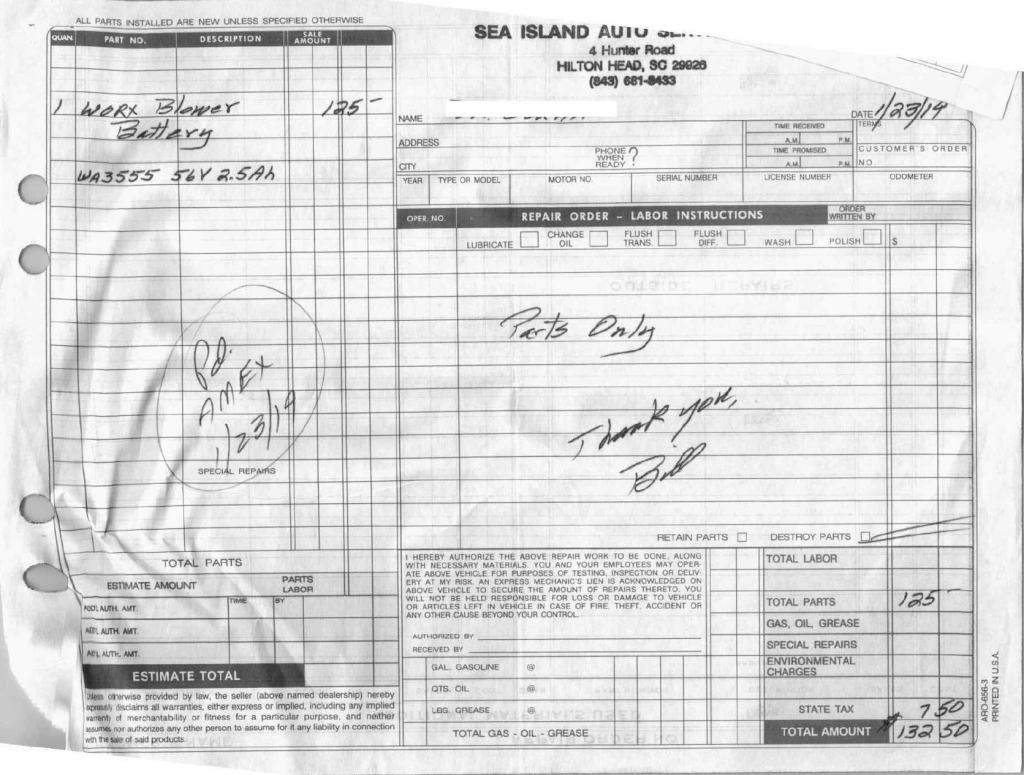 ALL PARTS INSTALLED ARE NEW UNLESS SPECIFIED OTHERWISE
QUAN. PART NO. DESCRIPTION SALE AMOUNT
1 WORX Blower 125-
Battery
WA3555 56V 2.5Ah
Pd.
AMEX
1/23/19
SPECIAL REPAIRS
TOTAL PARTS
ESTIMATE AMOUNT PARTS LABOR
ADD'L AUTH. AMT. TIME BY
ADD'L AUTH. AMT.
ADD'L AUTH. AMT.
ESTIMATE TOTAL
Unless otherwise provided by law, the seller (above named dealership) hereby
expressly disclaims all warranties, either express or implied, including any implied
warranty of merchantability or fitness for a particular purpose, and neither
assumes nor authorizes any other person to assume for it any liability in connection
with the sale of said products.
SEA ISLAND AUTO
4 Hunter Road
HILTON HEAD, SC 29926
(843) 681-8433
NAME
DATE 1/23/19
ADDRESS
TIME RECEIVED A.M. P.M. TERMS
CITY PHONE WHEN READY?
TIME PROMISED A.M. P.M. CUSTOMER'S ORDER NO.
YEAR TYPE OR MODEL MOTOR NO. SERIAL NUMBER LICENSE NUMBER ODOMETER
OPER. NO. REPAIR ORDER - LABOR INSTRUCTIONS ORDER WRITTEN BY
LUBRICATE CHANGE OIL FLUSH TRANS. FLUSH DIFF. WASH POLISH $
Parts Only
Thank you,
Bill
RETAIN PARTS DESTROY PARTS
I HEREBY AUTHORIZE THE ABOVE REPAIR WORK TO BE DONE, ALONG
WITH NECESSARY MATERIALS. YOU AND YOUR EMPLOYEES MAY OPER-
ATE ABOVE VEHICLE FOR PURPOSES OF TESTING, INSPECTION OR DELIV-
ERY AT MY RISK. AN EXPRESS MECHANIC'S LIEN IS ACKNOWLEDGED ON
ABOVE VEHICLE TO SECURE THE AMOUNT OF REPAIRS THERETO. YOU
WILL NOT BE HELD RESPONSIBLE FOR LOSS OR DAMAGE TO VEHICLE
OR ARTICLES LEFT IN VEHICLE IN CASE OF FIRE, THEFT, ACCIDENT OR
ANY OTHER CAUSE BEYOND YOUR CONTROL.
AUTHORIZED BY
RECEIVED BY
GAL. GASOLINE @
QTS. OIL @
LBG. GREASE @
TOTAL GAS - OIL - GREASE
TOTAL LABOR
TOTAL PARTS 125-
GAS, OIL, GREASE
SPECIAL REPAIRS
ENVIRONMENTAL CHARGES
STATE TAX 7 50
TOTAL AMOUNT $132 50
ARO-656-3
PRINTED IN U.S.A.